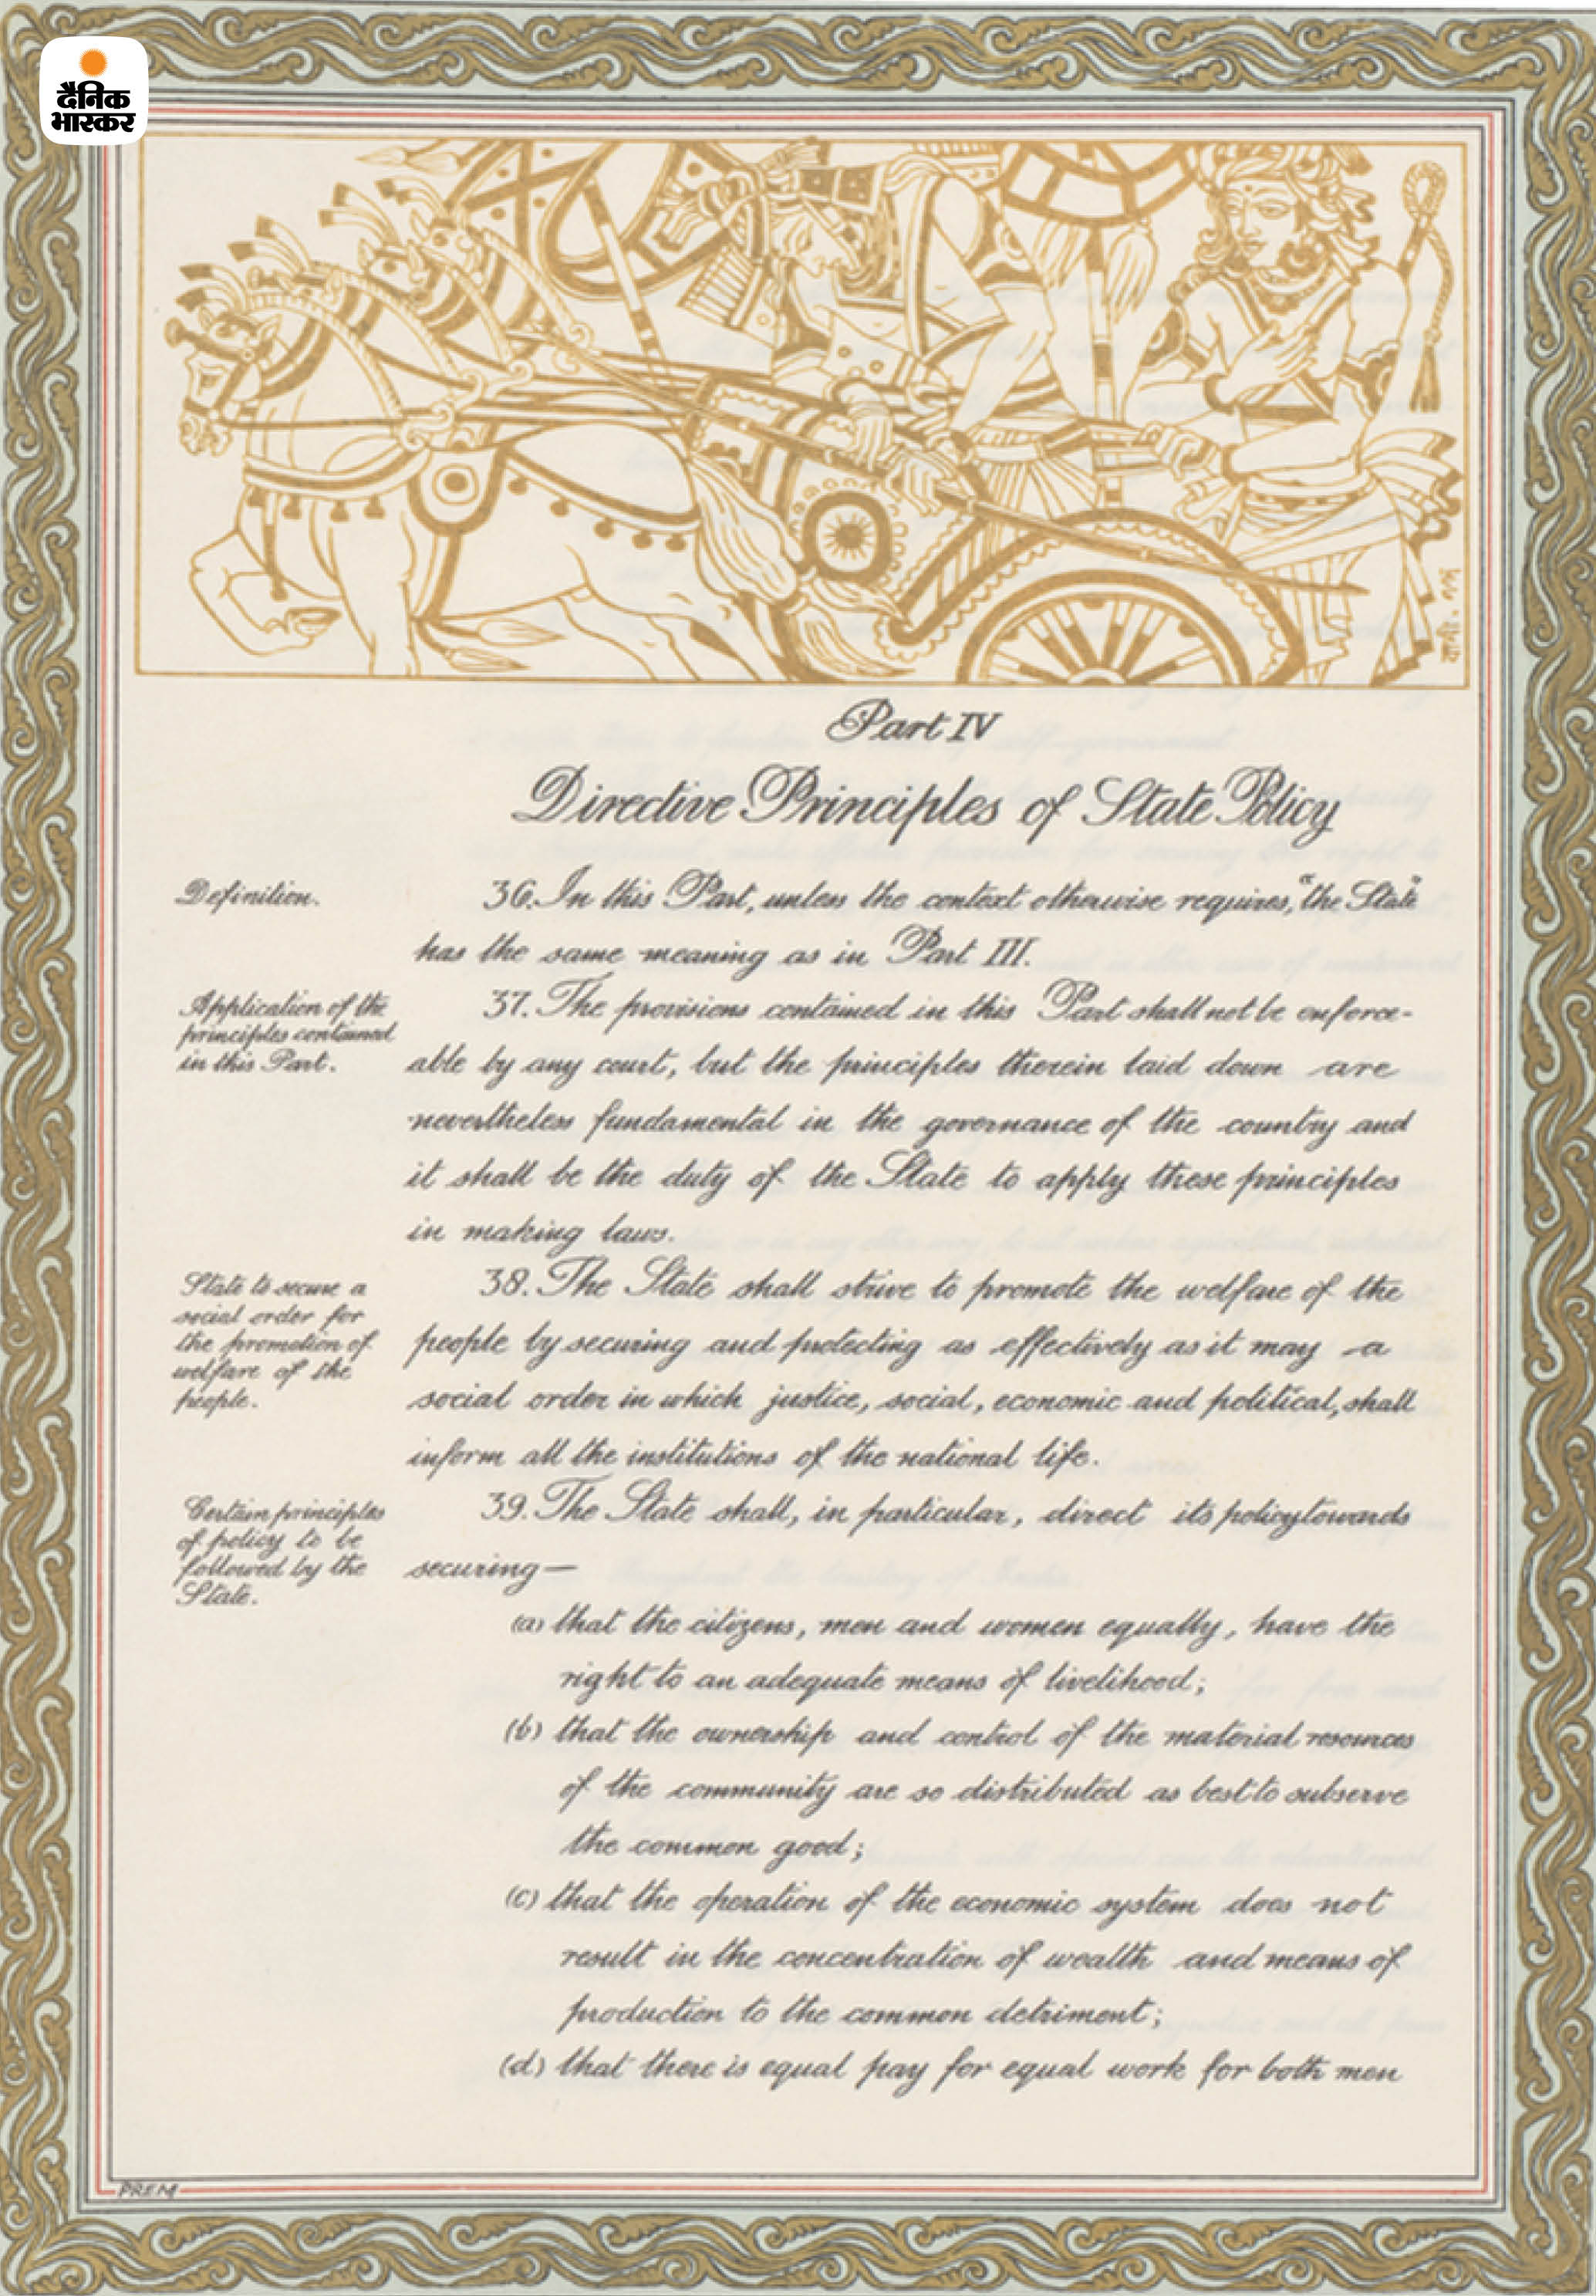 दैनिक
भास्कर
Part IV
Directive Principles of State Policy
Definition.
36. In this Part, unless the context otherwise requires, "the State"
has the same meaning as in Part III.
Application of the
principles contained
in this Part.
37. The provisions contained in this Part shall not be enforce-
able by any court, but the principles therein laid down are
nevertheless fundamental in the governance of the country and
it shall be the duty of the State to apply these principles
in making laws.
State to secure a
social order for
the promotion of
welfare of the
people.
38. The State shall strive to promote the welfare of the
people by securing and protecting as effectively as it may a
social order in which justice, social, economic and political, shall
inform all the institutions of the national life.
Certain principles
of policy to be
followed by the
State.
39. The State shall, in particular, direct its policy towards
securing—
(a) that the citizens, men and women equally, have the
right to an adequate means of livelihood;
(b) that the ownership and control of the material resources
of the community are so distributed as best to subserve
the common good;
(c) that the operation of the economic system does not
result in the concentration of wealth and means of
production to the common detriment;
(d) that there is equal pay for equal work for both men
PREM